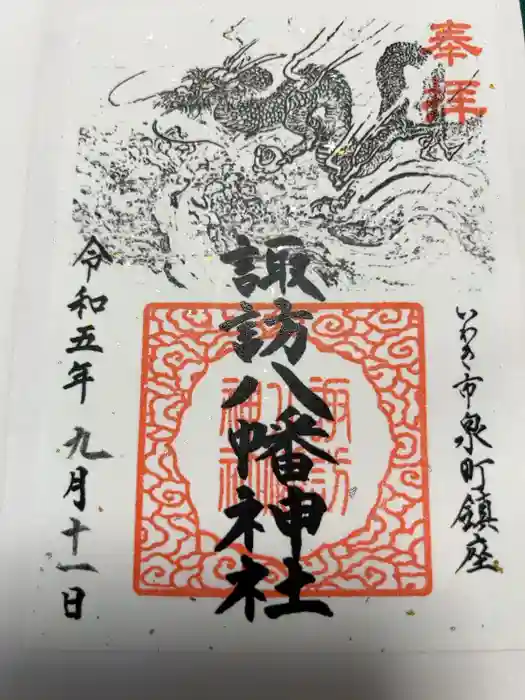 奉拝
いわき市泉町鎮座
諏訪八幡神社
令和五年九月十一日